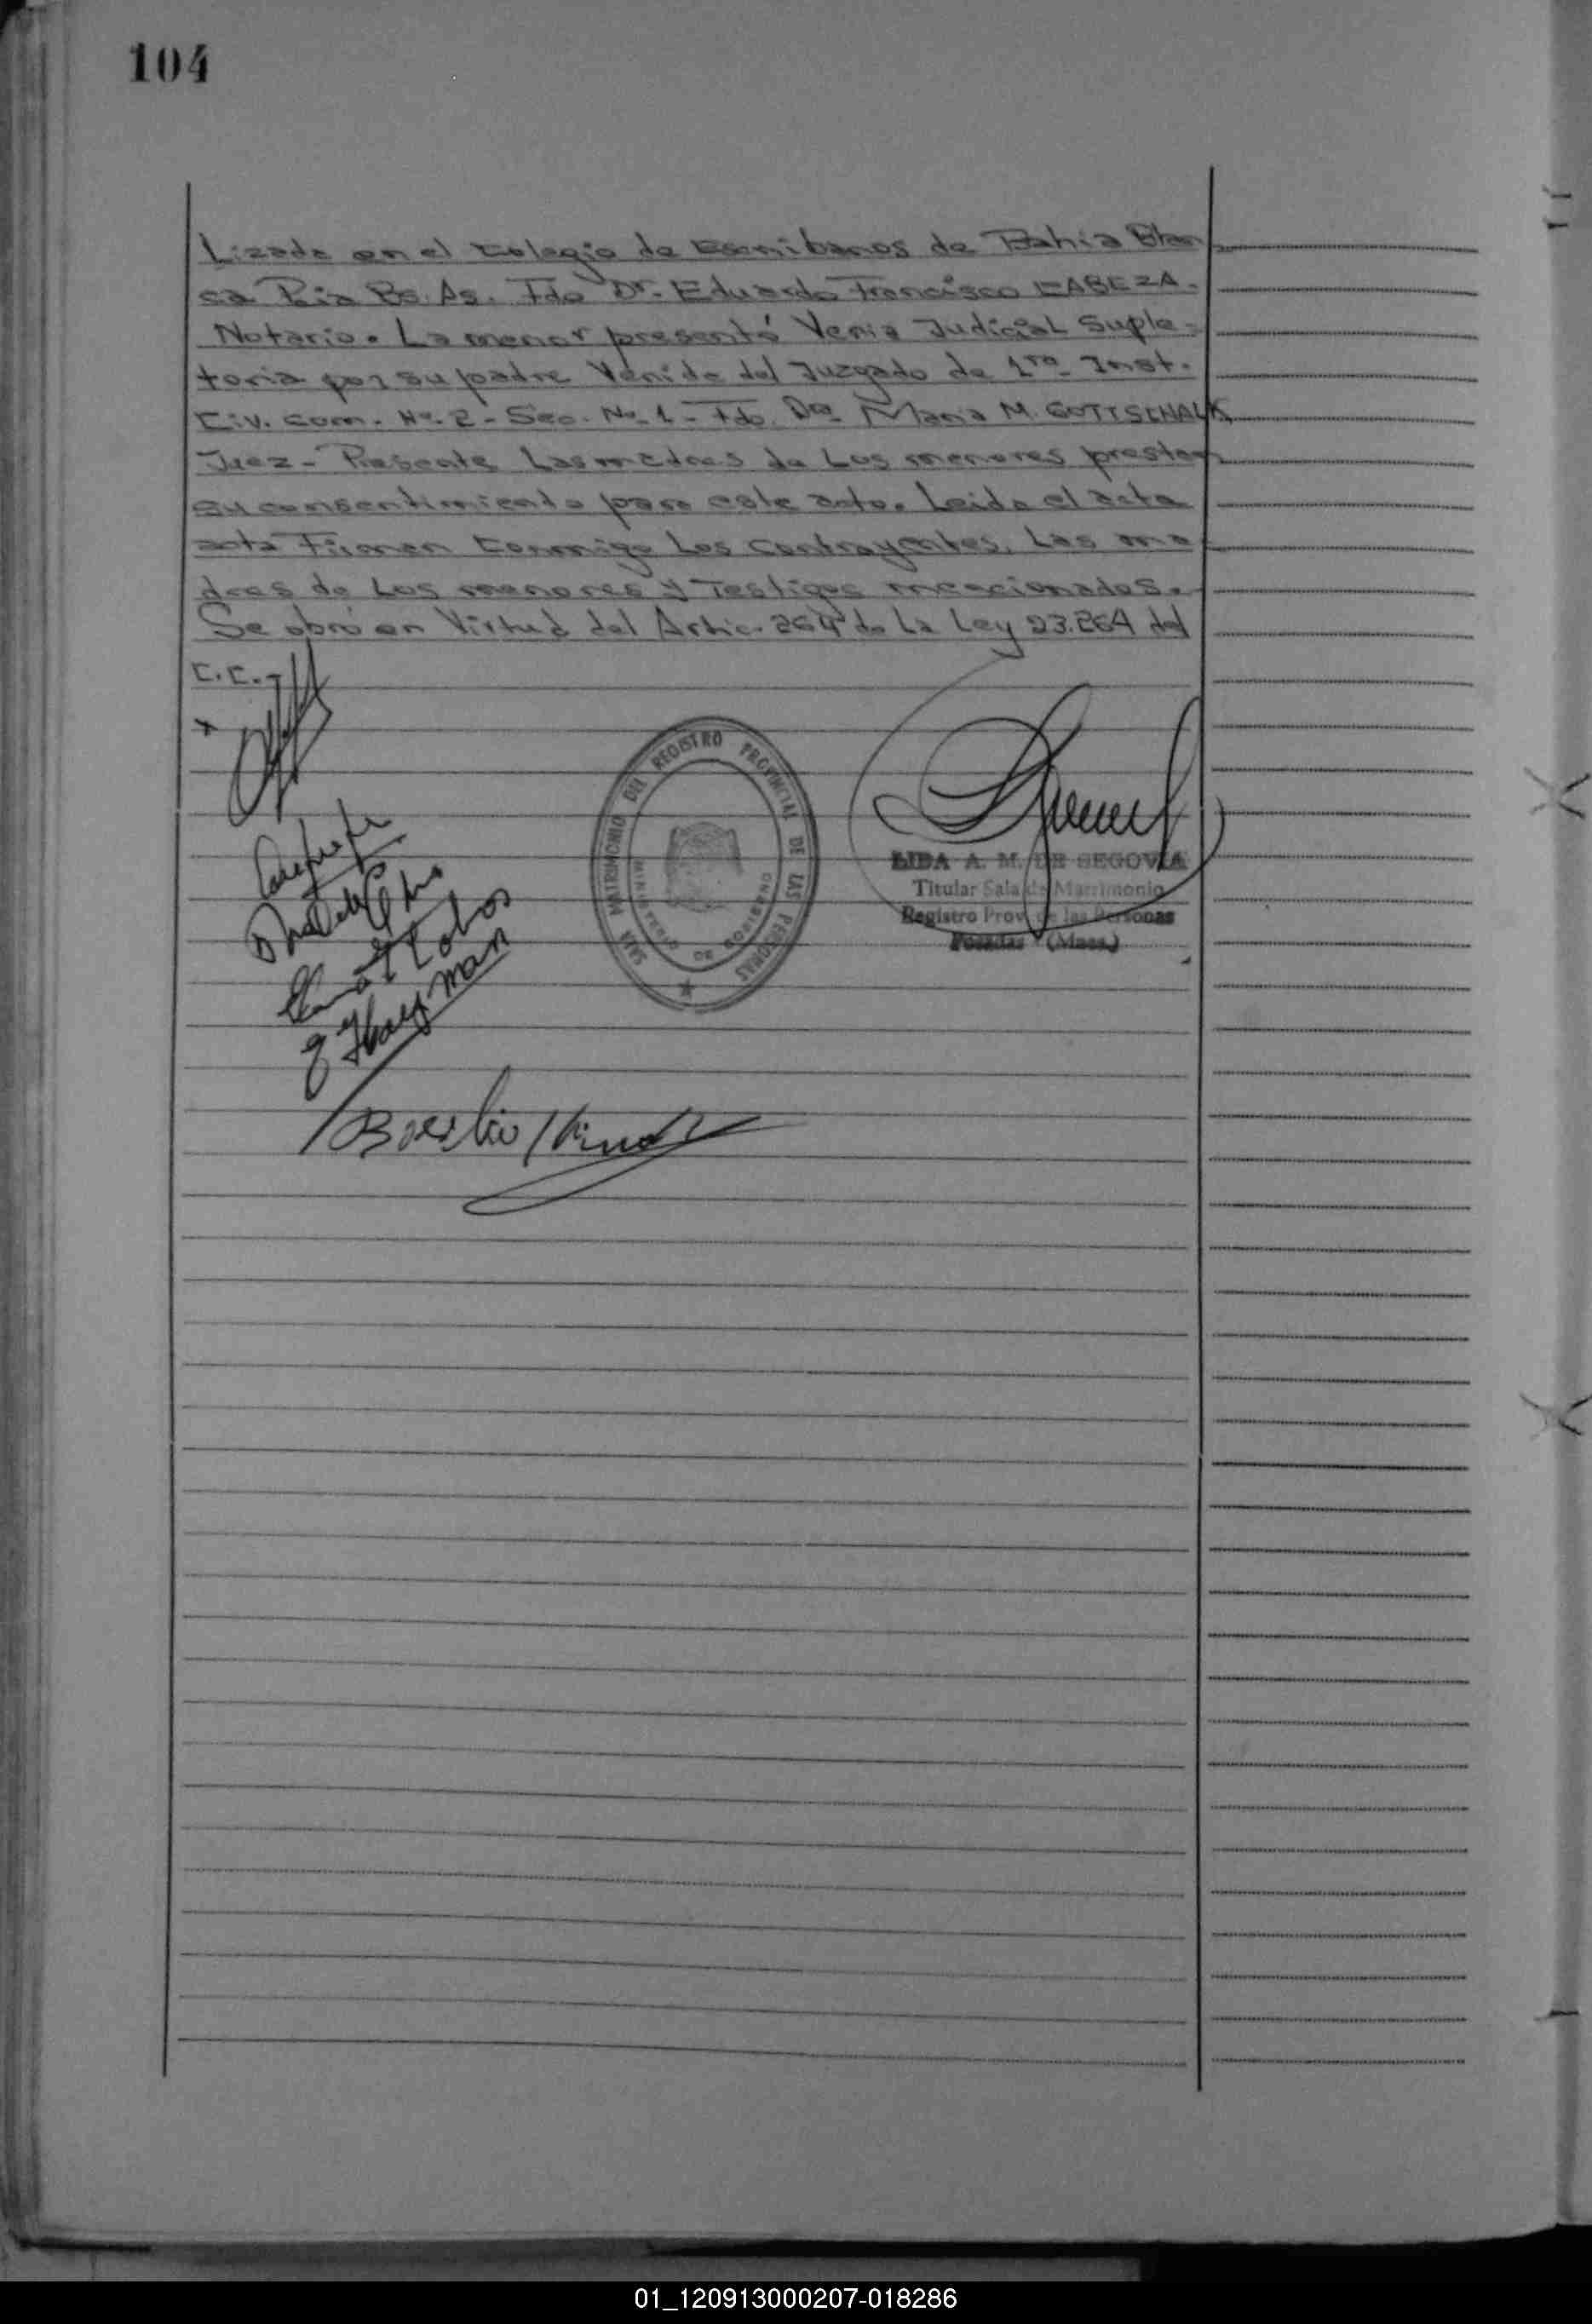 104
Lizada en el Colegio de Escribanos de Bahía Blan
ca Pcia Bs. As. Fdo Dr. Eduardo Francisco CABEZA.
Notario. La menor presentó Venia Judicial Suple=
toria por su padre Venida del Juzgado de 1ra Inst.
Civ. Com. Nº 2 - Sec. Nº 1 - Fdo. Dra María M. GOTTSCHALK
Juez - Presente Las madres de Los menores prestan
su consentimiento para este acto. Leida el acta
acta Firman Conmigo Los Contrayentes, Las ma
dres de Los menores y Testigos mencionados.
Se obró en Virtud del Artic. 264 de La Ley 23.264 del
C.C.-
SALA MATRIMONIO DEL REGISTRO PROVINCIAL DE LAS PERSONAS
MINISTERIO DE GOBIERNO
LIDA A. M. DE SEGOVIA
Titular Sala de Matrimonio
Registro Prov. de las Personas
Posadas (Mnes.)
01_120913000207-018286